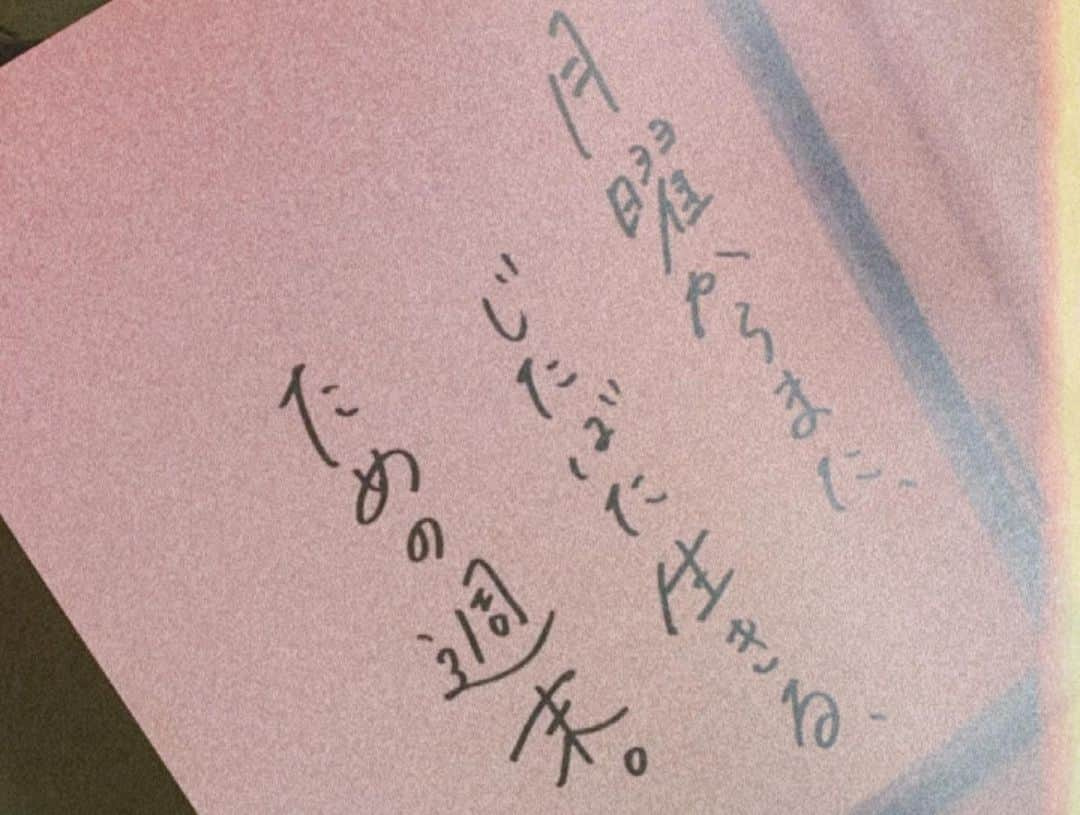 月曜からまた、
じたばた生きる、
ための週末。